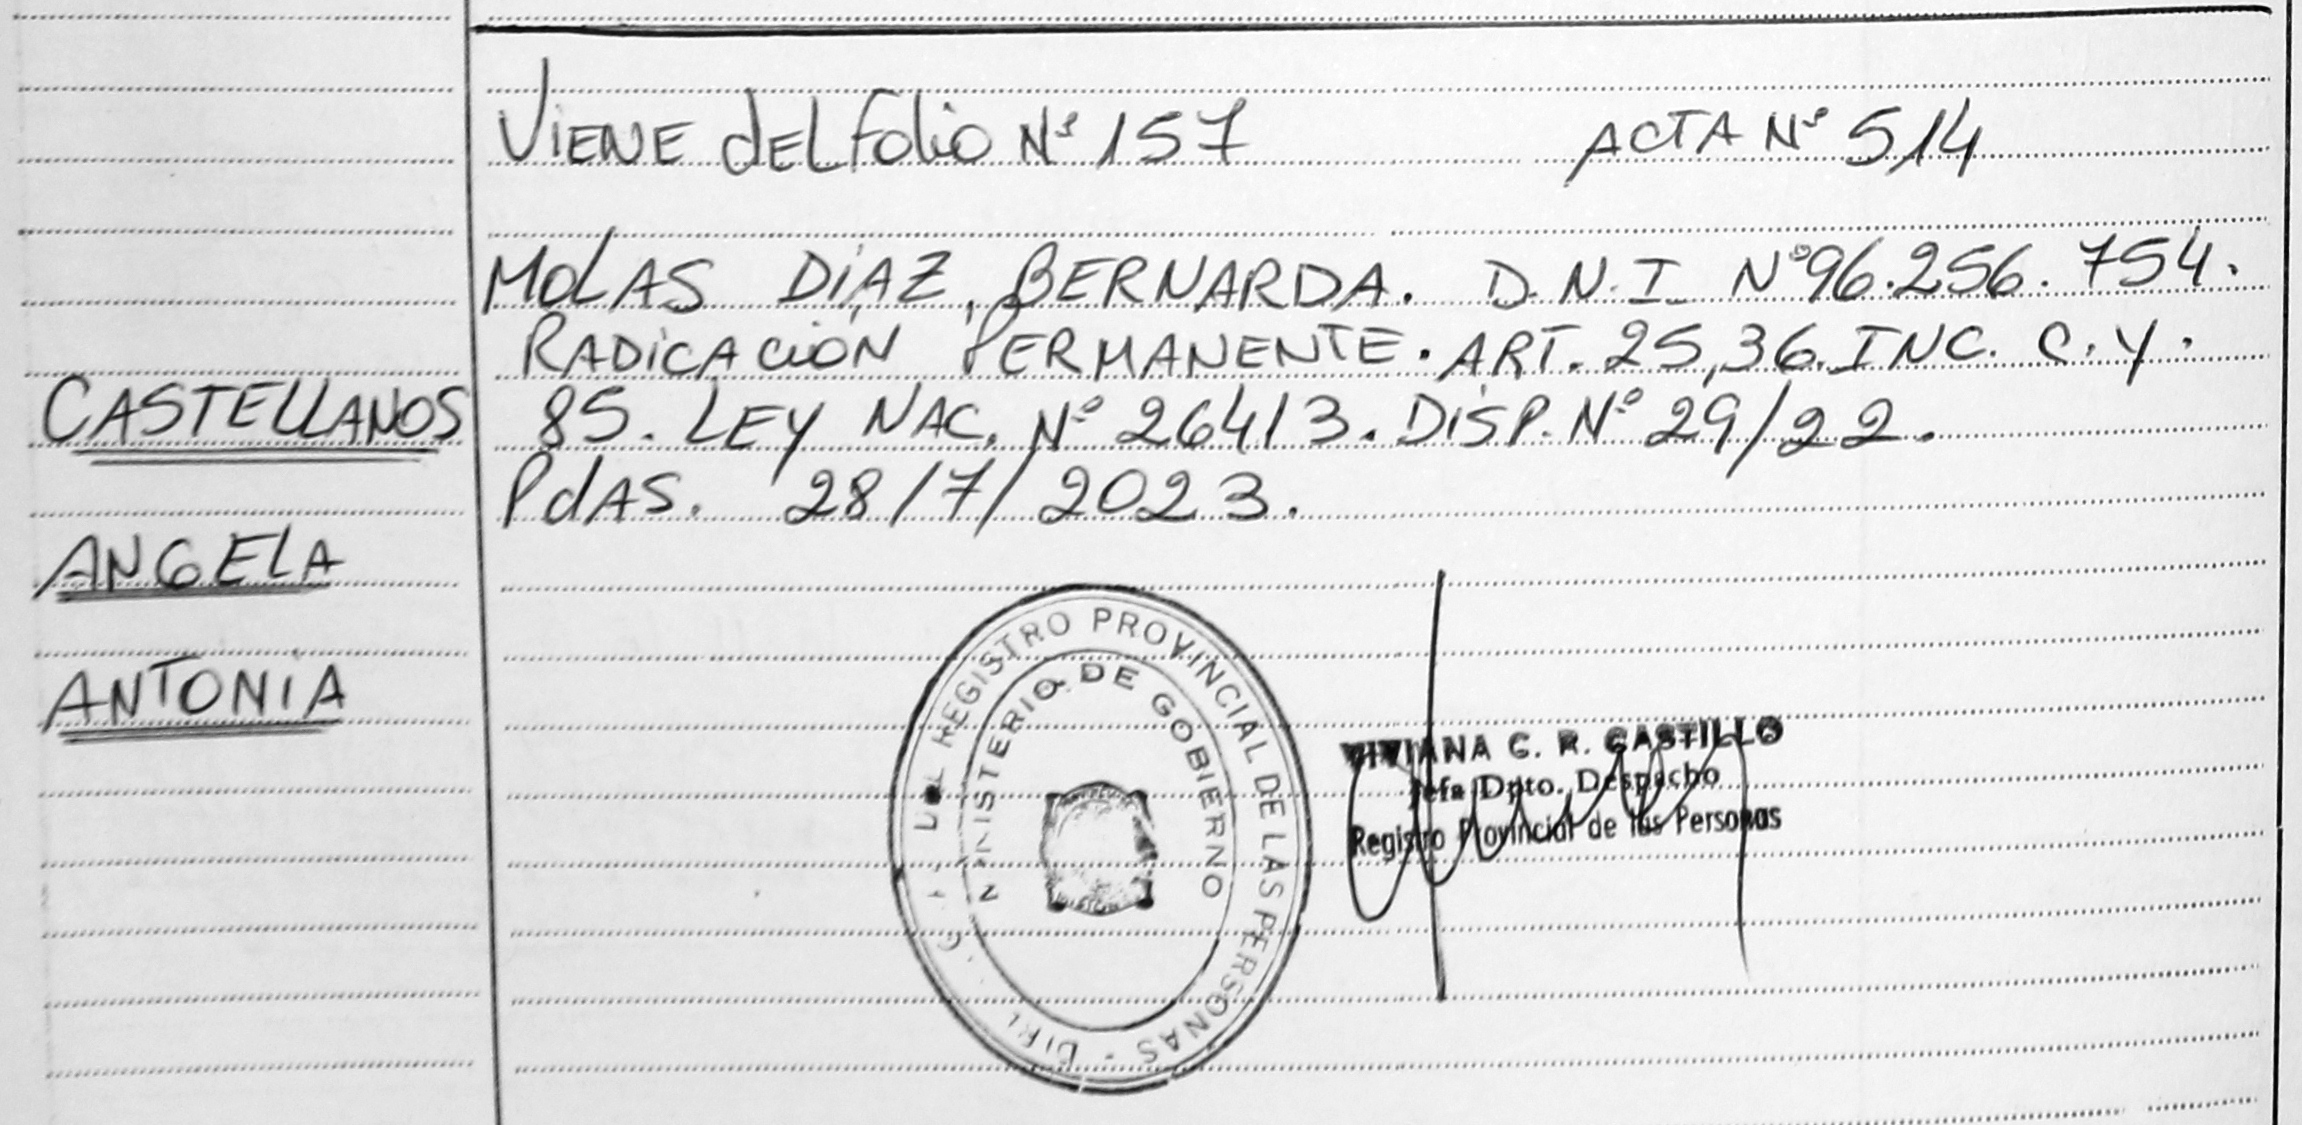 VIENE del Folio Nº 157
ACTA Nº 514
MOLAS DÍAZ, BERNARDA. D.N.I Nº 96.256.754.
RADICACIÓN PERMANENTE. ART. 25,36. INC. C. Y.
85. LEY NAC. Nº 26413. DISP. Nº 29/22.
PdAS. 28/7/2023.
CASTELLANOS
ANGELA
ANTONIA
REGISTRO PROVINCIAL DE LAS PERSONAS
MINISTERIO DE GOBIERNO
VIVIANA C. R. CASTILLO
Jefa Dpto. Despacho
Registro Provincial de las Personas